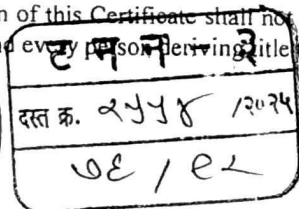 n of this Certificate shall not
d every person deriving title
ट म न - ३
दस्त क्र. २५५४ /२०२५
७६ / ९२